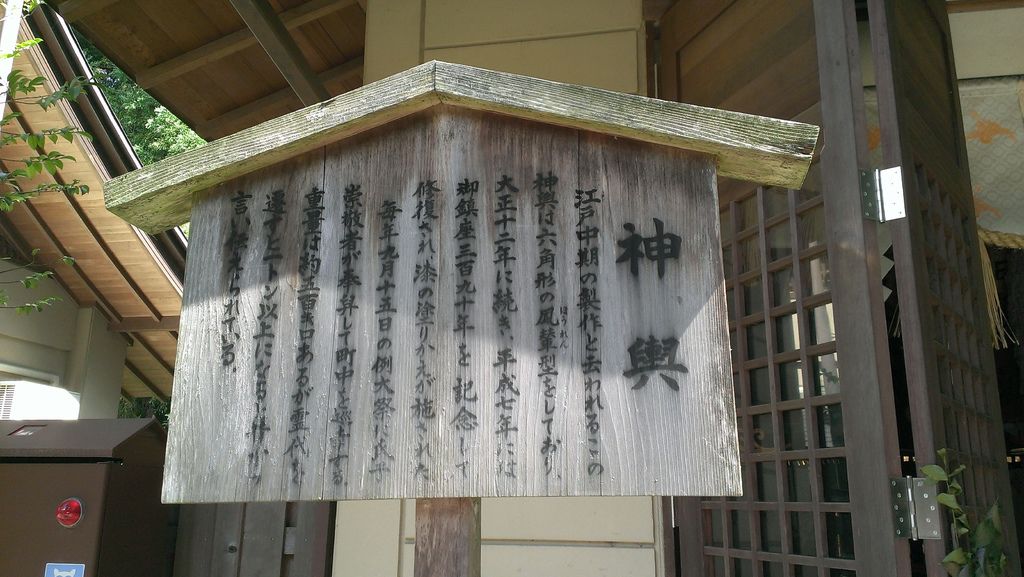 神輿
江戸中期の製作と云われるこの
神輿は六角形の鳳輦型をしており、
ほうれん
大正十二年に続き、平成七年には
御鎮座三百九十年を記念して
修復され、漆の塗りかえが施された
毎年九月十五日の例大祭には氏子
崇敬者が奉舁して町中を
重量は約五百キロあるが霊代を
遷すと二トン以上になる
言い伝えられている。